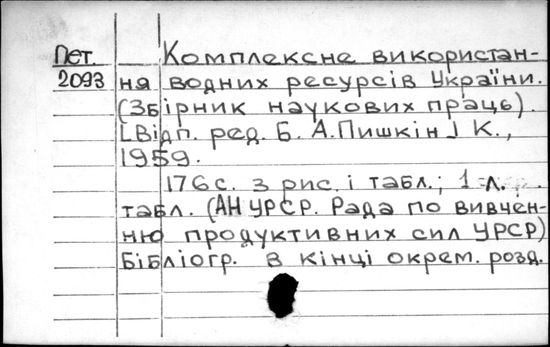 Пет. Комплексне використан-
2093 ня водних ресурсів України.
(Збірник наукових праць).
[Відп. ред. Б. А. Пишкін] К.,
1959.
176с. з рис. і табл.; 1 л.
табл. (АН УРСР. Рада по вивчен-
ню продуктивних сил УРСР)
Бібліогр. в кінці окрем. розд.